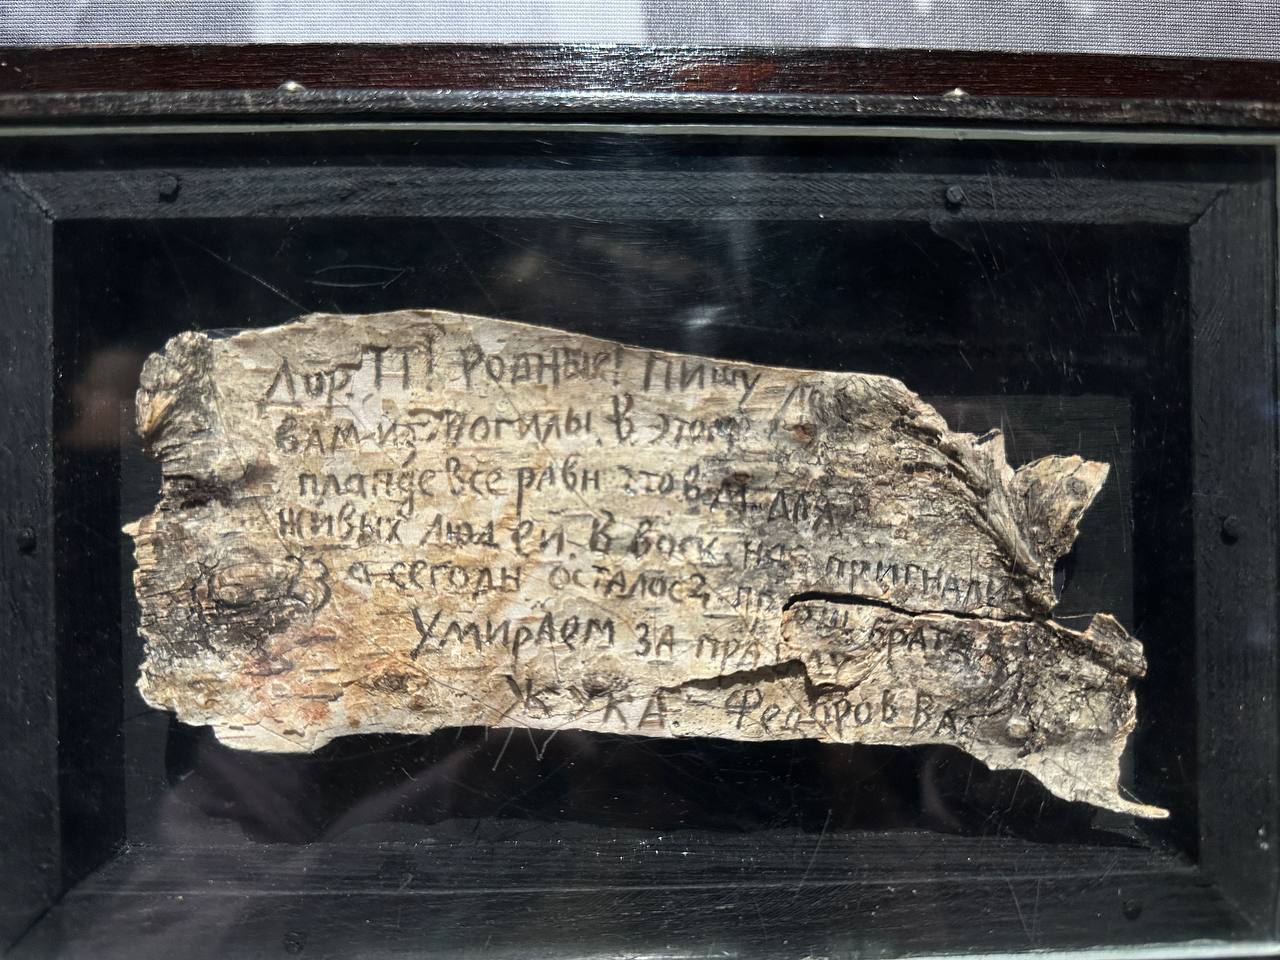 Дор. ТТ! РОДНЫЕ! ПИШУ
ВАМ ИЗ МОГИЛЫ. В ЭТОМ
ВСЕ РАВН ЭТО ДЛЯ
ЖИВЫХ ЛЮДЕЙ. В ВОСК. НАС ПРИГНАЛИ
23 а СЕГОДН ОСТАЛОС 2,
УМИРАЕМ ЗА ПРАВДУ
ЖУКА. ВА.